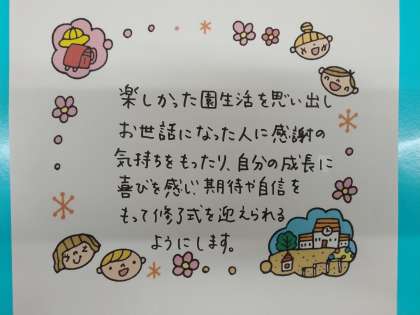 楽しかった園生活を思い出し
お世話になった人に感謝の
気持ちをもったり、自分の成長に
喜びを感じ、期待や自信を
もって修了式を迎えられる
ようにします。